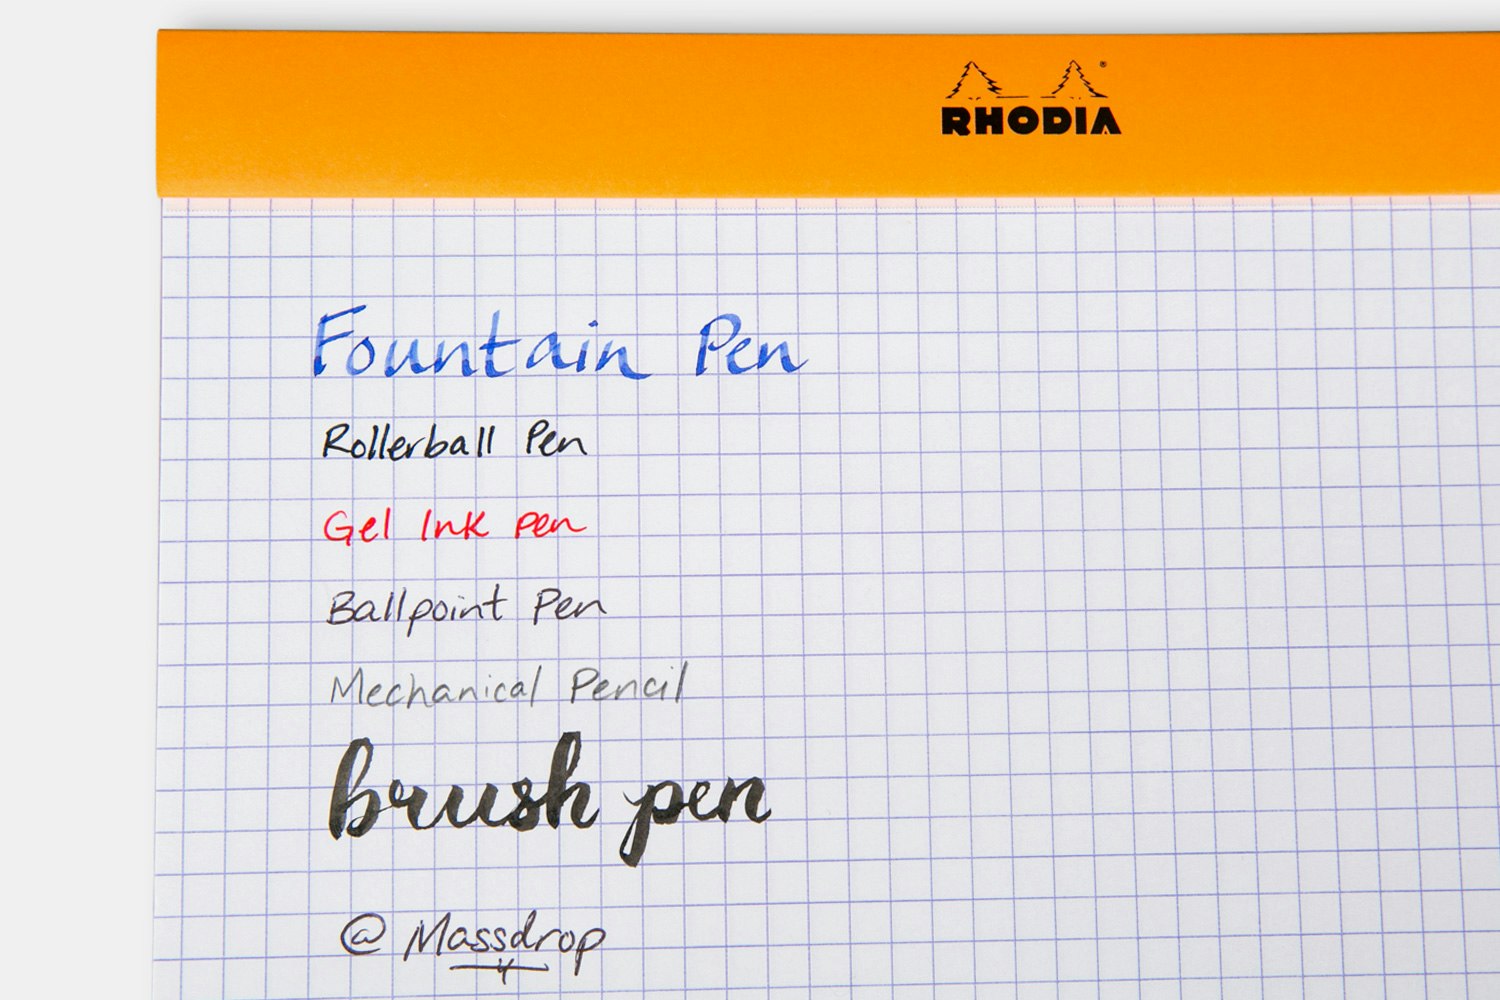 RHODIA
Fountain Pen
Rollerball Pen
Gel Ink pen
Ballpoint Pen
Mechanical Pencil
brush pen
@ Massdrop